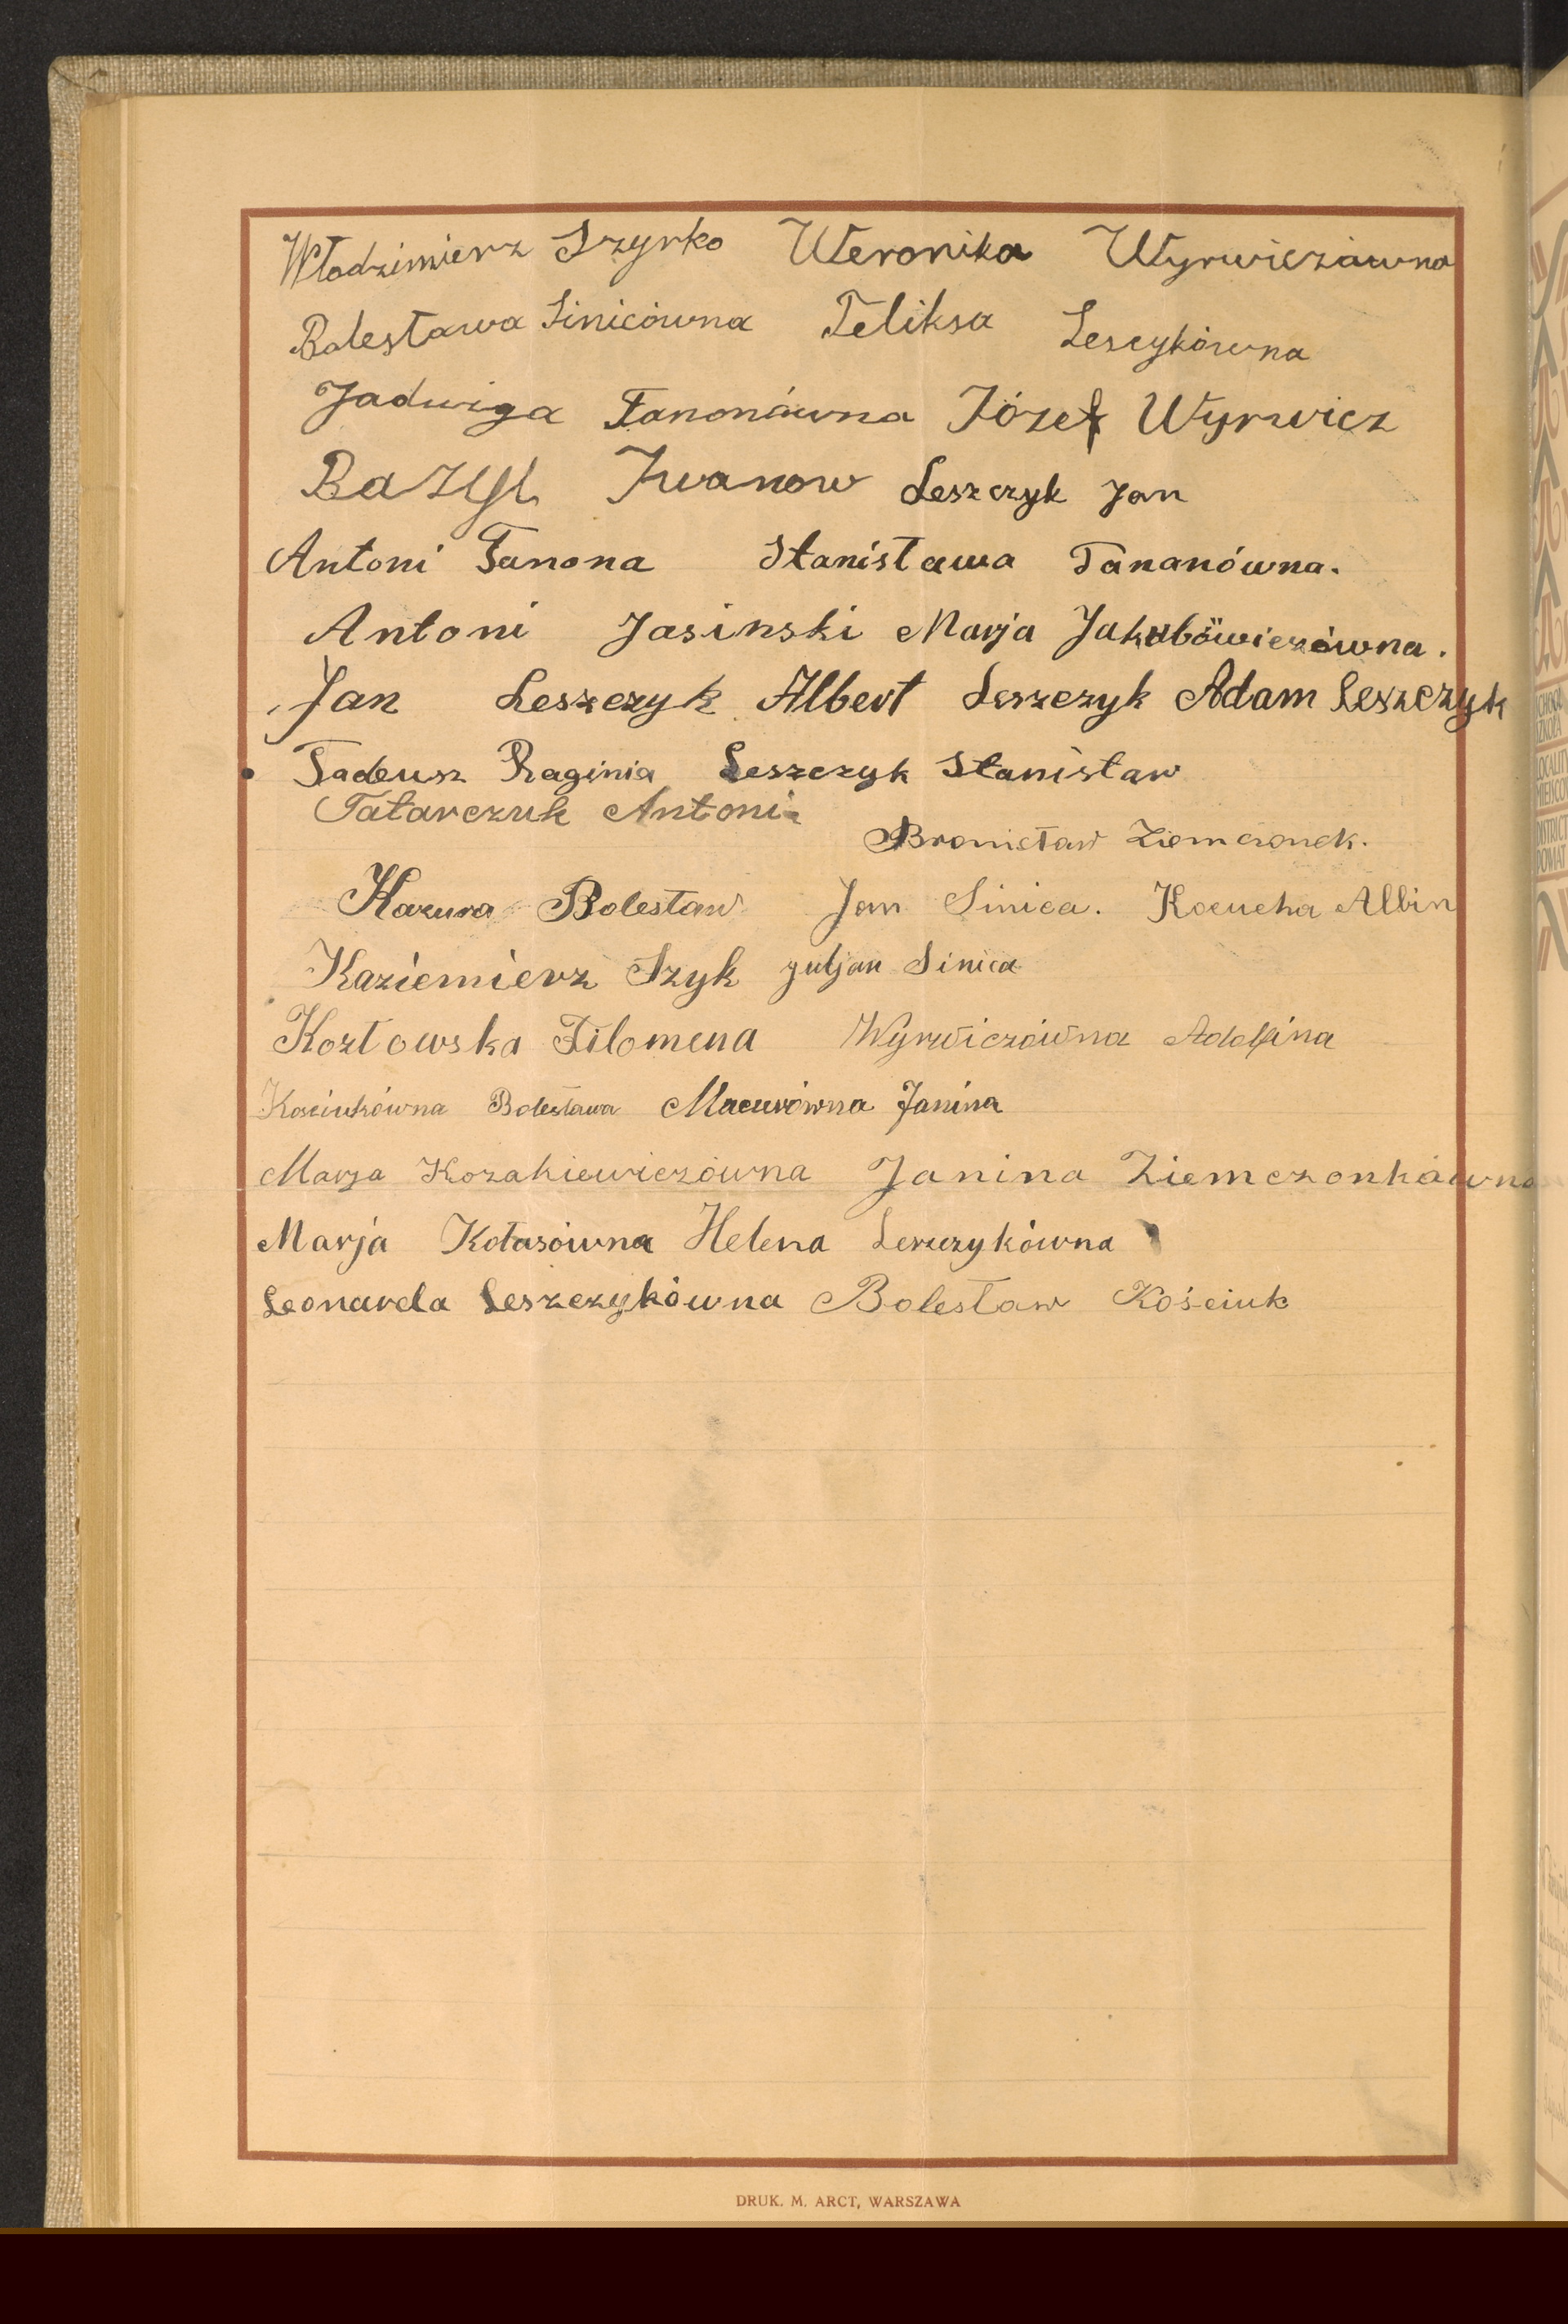 Włodzimierz Szyrko Weronika Wyrwiczówna
Bolesława Sinicówna Feliksa Lescykówna
Jadwiga Tanonówna Józef Wyrwicz
Bazyl Iwanow Leszczyk Jan
Antoni Tanona Stanisława Tananówna.
Antoni Jasinski Marja Jakubowiczówna.
Jan Leszczyk Albert Leszczyk Adam Leszczyk
Tadeusz Raginia Leszczyk Stanisław
Tatarczuk Antoni
Bronisław Ziemczonek.
Kazura Bolesław Jan Sinica. Kocucha Albin
Kaziemierz Szyk Juljan Sinica
Kozłowska Filomena Wyrwiczówna Adolfina
Kościukówna Bolesława Macurówna Janina
Marja Kozakiewiczówna Janina Ziemczonkówna
Marja Kotasówna Helena Leszczykówna
Leonarda Leszczykówna Bolesław Kościuk
DRUK. M. ARCT, WARSZAWA